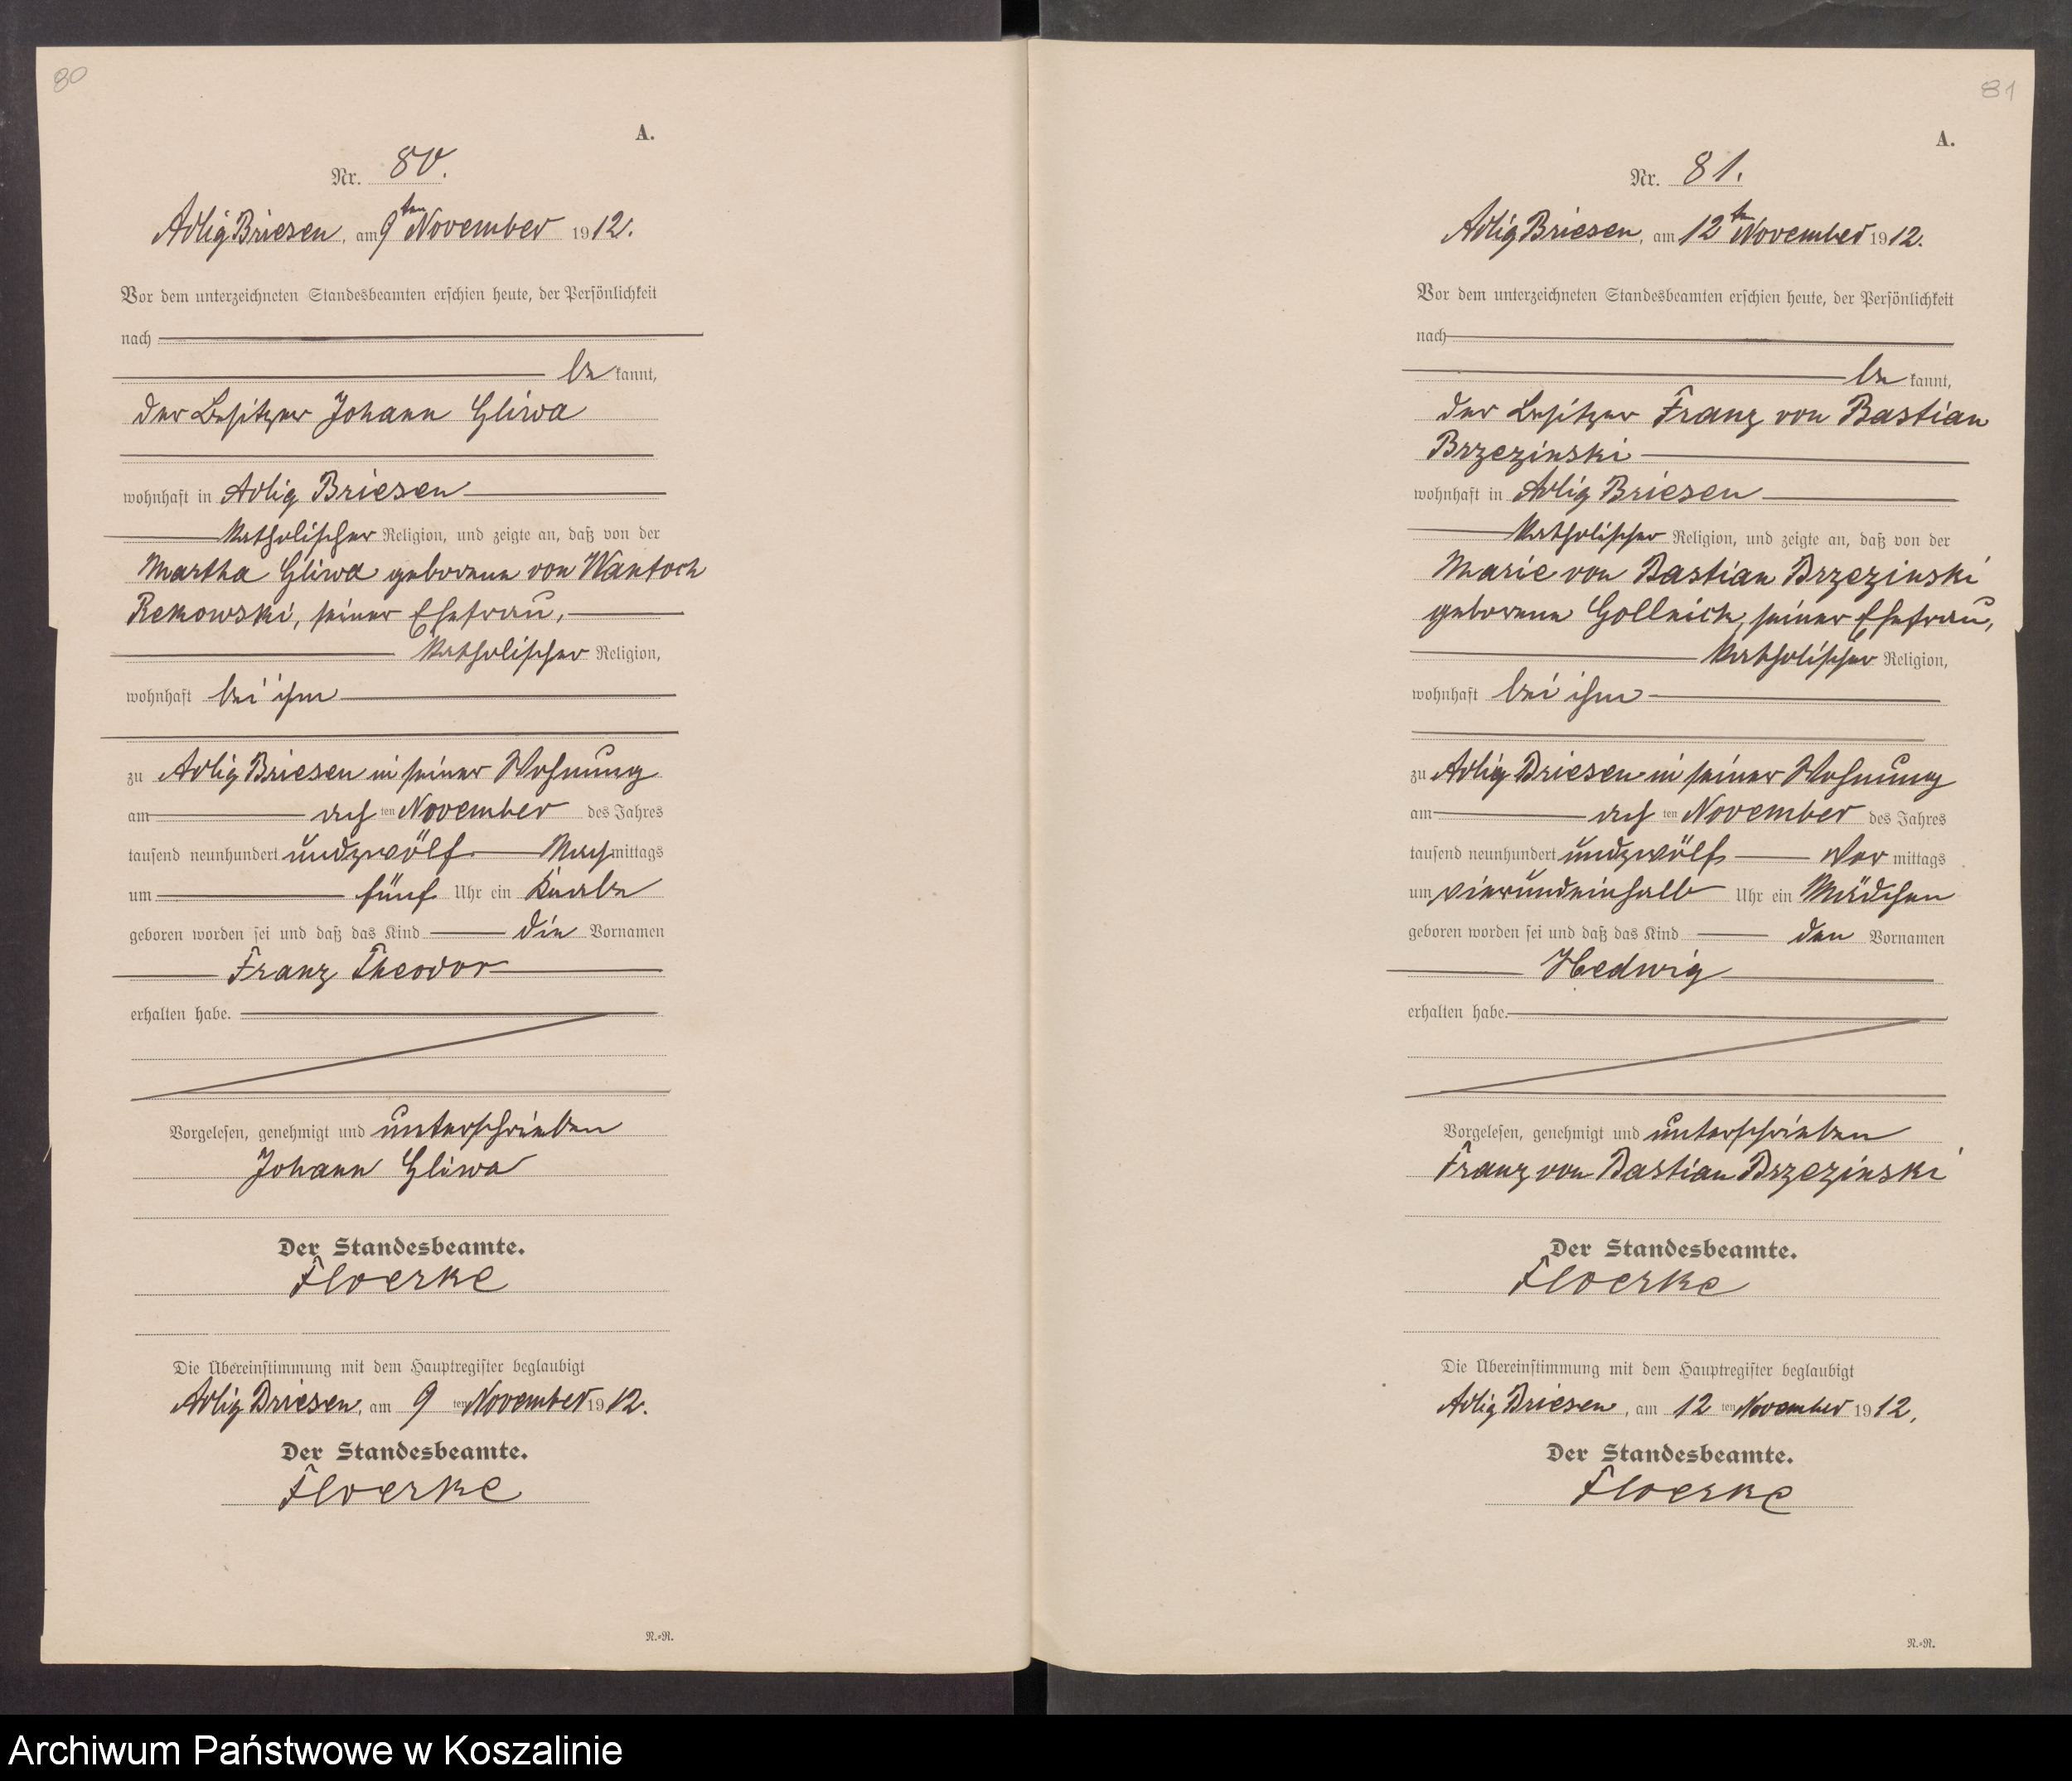 80
A.
Nr. 80.
Adlig Briesen, am 9ten November 1912.
Vor dem unterzeichneten Standesbeamten erschien heute, der Persönlichkeit
nach
be kannt,
der Besitzer Johann Gliwa
wohnhaft in Adlig Briesen
katholischer Religion, und zeigte an, daß von der
Martha Gliwa geborene von Wantoch
Rekowski, seiner Ehefrau,
katholischer Religion,
wohnhaft bei ihm
zu Adlig Briesen in seiner Wohnung
am acht ten November des Jahres
tausend neunhundert undzwölf Nachmittags
um fünf Uhr ein Knabe
geboren worden sei und daß das Kind die Vornamen
Franz Theodor
erhalten habe.
Vorgelesen, genehmigt und unterschrieben
Johann Gliwa
Der Standesbeamte.
Floerke
Die Übereinstimmung mit dem Hauptregister beglaubigt
Adlig Briesen, am 9 ten November 1912.
Der Standesbeamte.
Floerke
N.=R.
81
A.
Nr. 81.
Adlig Briesen, am 12ten November 1912.
Vor dem unterzeichneten Standesbeamten erschien heute, der Persönlichkeit
nach
be kannt,
der Besitzer Franz von Bastian
Brzezinski
wohnhaft in Adlig Briesen
katholischer Religion, und zeigte an, daß von der
Marie von Bastian Brzezinski
geborene Gollnick, seiner Ehefrau,
katholischer Religion,
wohnhaft bei ihm
zu Adlig Briesen in seiner Wohnung
am ten November des Jahres
tausend neunhundert undzwölf Vor mittags
um vierundeinhalb Uhr ein Mädchen
geboren worden sei und daß das Kind den Vornamen
Hedwig
erhalten habe.
Vorgelesen, genehmigt und unterschrieben
Franz von Bastian Brzezinski
Der Standesbeamte.
Floerke
Die Übereinstimmung mit dem Hauptregister beglaubigt
Adlig Briesen, am 12 ten November 1912.
Der Standesbeamte.
Floerke
N.=R.
Archiwum Państwowe w Koszalinie